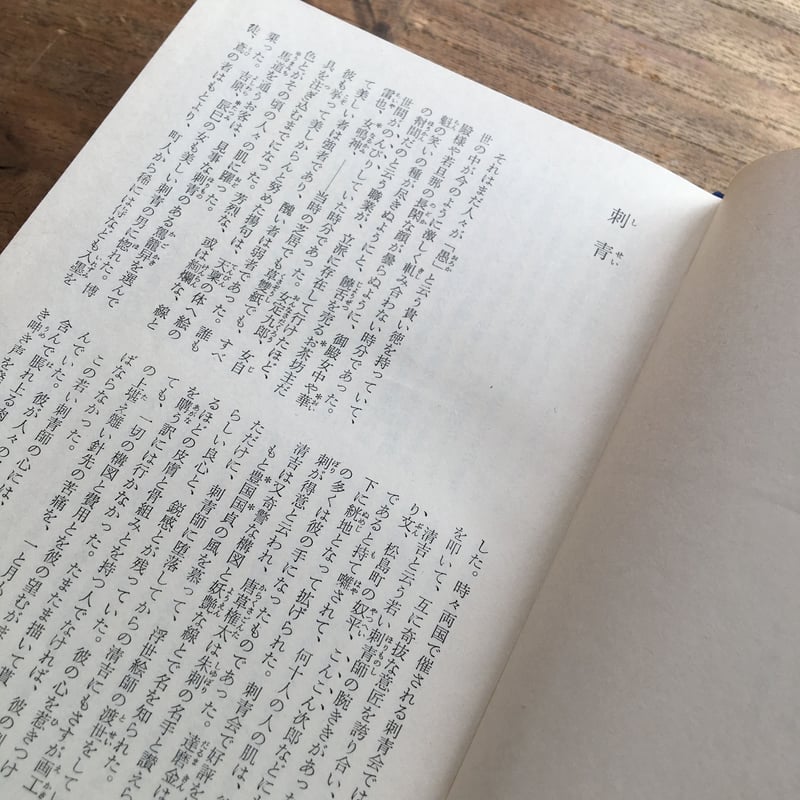 刺青
それはまだ人々が「愚」と云う貴い徳を持っていて、
世の中が今のように激しく軋み合わない時分であった。
殿様や若旦那の長閑な顔が曇らぬように、御殿女中や華
魁の笑いの種が尽きぬようにと、饒舌を売るお茶坊主だ
の幇間だのと云う職業が、立派に存在して行けたほど、
世間がのんびりしていた時分であった。女定九郎、女自
雷也、女鳴神、――当時の芝居でも草双紙でも、すべ
て美しい者は強者であり、醜い者は弱者であった。誰も
彼も挙って美しからんと努めた揚句は、天稟の体へ絵の
具を注ぎ込むまでになった。芳烈な、或は絢爛な、線と
色とがその頃の人々の肌に躍った。
馬道を通うお客は、見事な刺青のある駕籠舁を選んで
乗った。吉原、辰巳の女も美しい刺青の男に惚れた。博
徒、鳶の者はもとより、町人から稀には侍なども入墨を
した。時々両国で催される刺青会では
を叩いて、互に奇抜な意匠を誇り合い、
清吉と云う若い刺青師の腕ききがあった
り文、松島町の奴平、こんこん次郎などにも
であると持て囃されて、何十人の人の肌は、
下に絖地となって拡げられた。刺青会で好評を
の多くは彼の手になったものであった。達磨金は
刺が得意と云われ、唐草権太は朱刺の名手と讃えら
清吉は又奇警な構図と妖艶な線とで名を知られた。
もと豊国国貞の風を慕って、浮世絵師の渡世をして
ただけに、刺青師に堕落してからの清吉にもさすが画工
らしい良心と、鋭感とが残っていた。彼の心を惹きつけ
るほどの皮膚と骨組みとを持つ人でなければ、彼の刺
を購う訳には行かなかった。たまたま描いて貰
ても、一切の構図と費用とを彼の望むがまま
の上堪え難い針先の苦痛を、一と月も
ばならなかった。
この若い刺青師の心には、
んでいた。彼が人々の
含んで脹れ上る肉の
き呻き声を